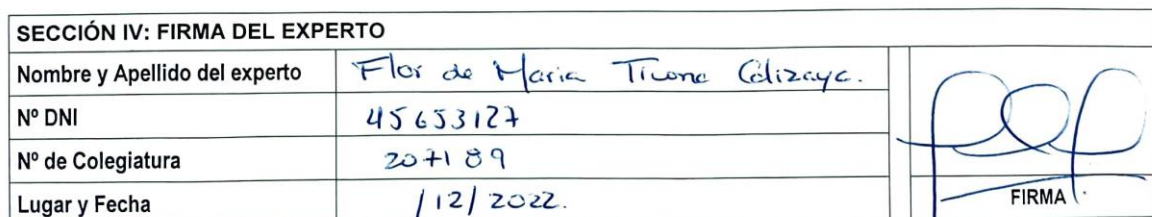 SECCIÓN IV: FIRMA DEL EXPERTO
Nombre y Apellido del experto Flor de Maria Ticona Calizaya.
Nº DNI 45653127
Nº de Colegiatura 207189
Lugar y Fecha /12/ 2022.
FIRMA